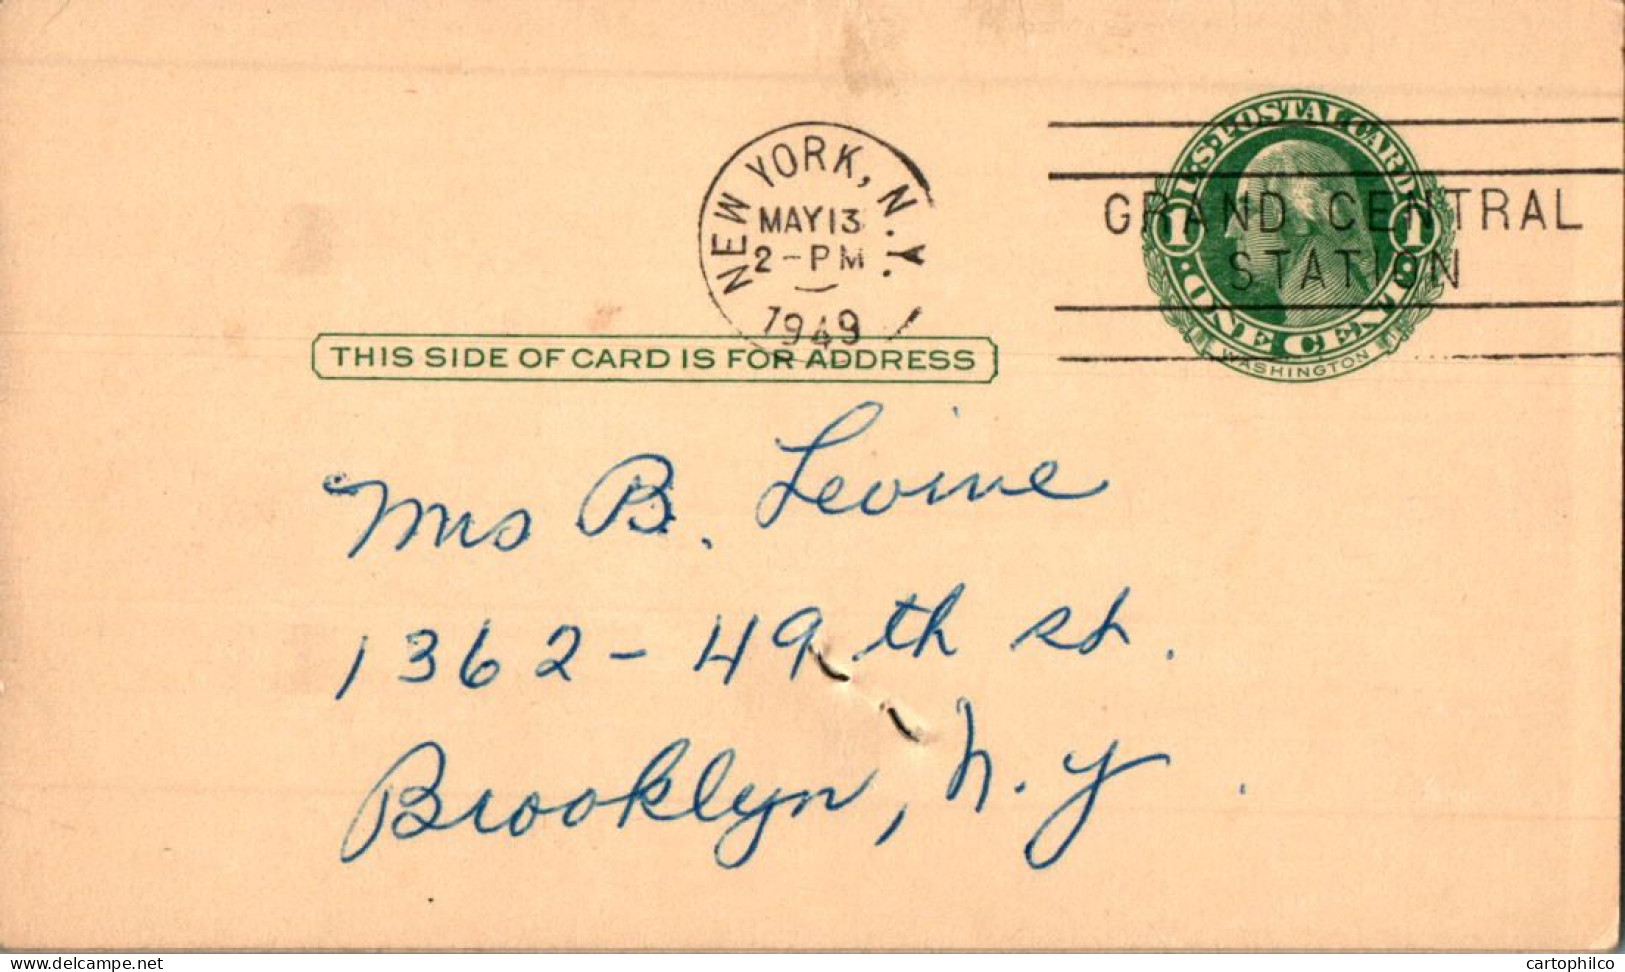 U.S. POSTAL CARD
1 1
ONE CENT
WASHINGTON
NEW YORK, N.Y.
MAY 13
2-PM
1949
GRAND CENTRAL
STATION
THIS SIDE OF CARD IS FOR ADDRESS
Mrs B. Levine
1362-49th st.
Brooklyn, N.Y.
www.delcampe.net
cartophilco